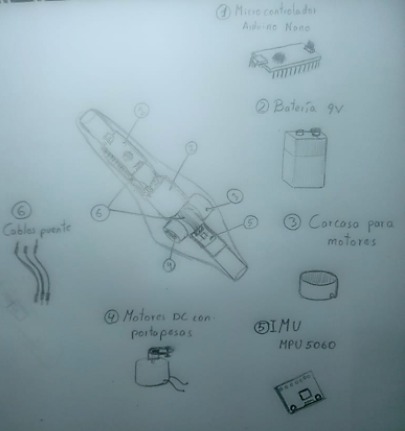 ① Microcontrolador
Arduino Nano
② Batería 9V
③ Carcasa para
motores
④ Motores DC con
portapesas
⑤ IMU
MPU5060
⑥
Cables puente
⑥